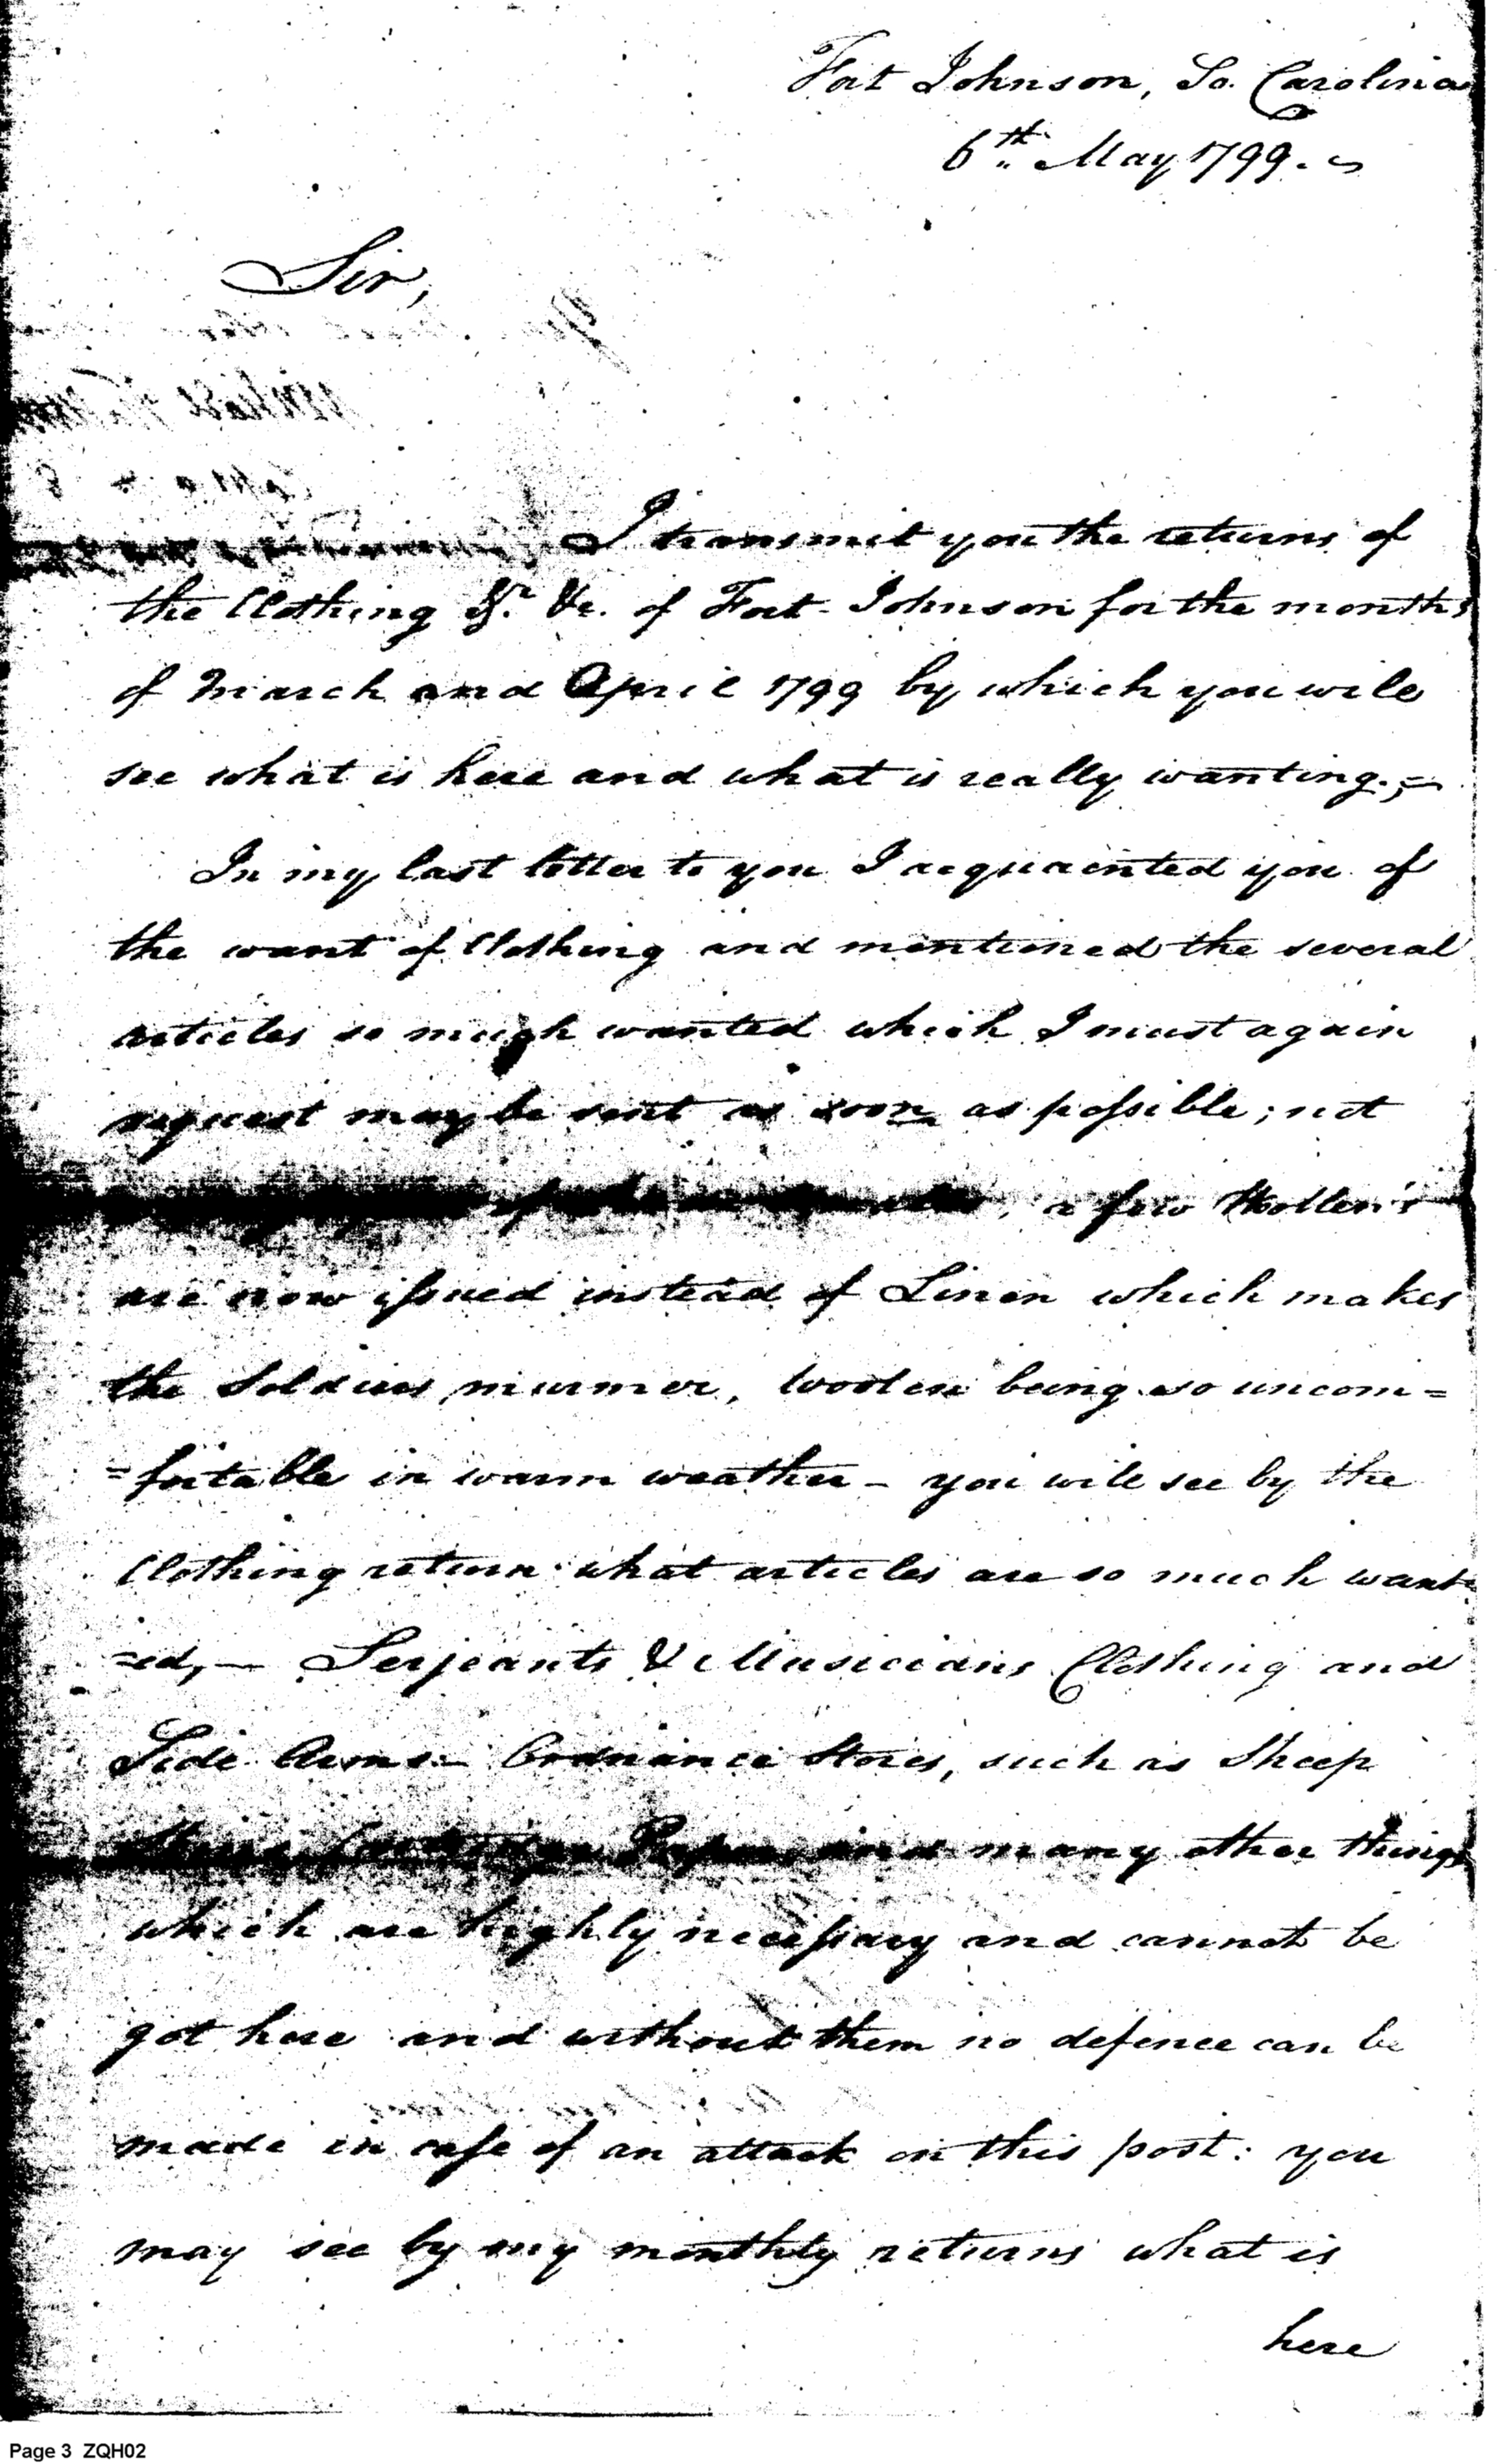 Fort Johnson, So. Carolina
6th. May 1799.
Sir,
I transmit you the returns of
the Clothing &c. &c. of Fort Johnson for the months
of March and April 1799 by which you will
see what is here and what is really wanting.;
In my last letter to you I acquainted you of
the want of Clothing and mentioned the several
articles so much wanted which I must again
request may be sent as soon as possible; not
a few
are now issued instead of Linen which makes
the Soldiers murmer, woolen being so uncom=
=fortable in warm weather - you will see by the
Clothing return what articles are so much want=
=ed, — Serjeants & Musicians Clothing and
Side Arms - Ordnance Stores, such as Sheep
Skins Cartridge Paper and many other things
which are highly necessary and cannot be
got here and without them no defence can be
made in case of an attack on this post: you
may see by my monthly returns what is
here
Page 3 ZQH02